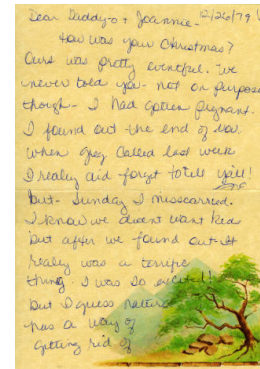 Dear Daddy-o + Joannie - 12/26/79
How was your Christmas?
Ours was pretty eventful. We
never told you - not on purpose
though - I had gotten pregnant.
I found out the end of Nov.
When Greg called last week
I really did forget to tell y'all!
But - Sunday I miscarried.
I know we didn't want kids
but after we found out - it
really was a terrific
thing - I was so excited!
But I guess nature
has a way of
getting rid of